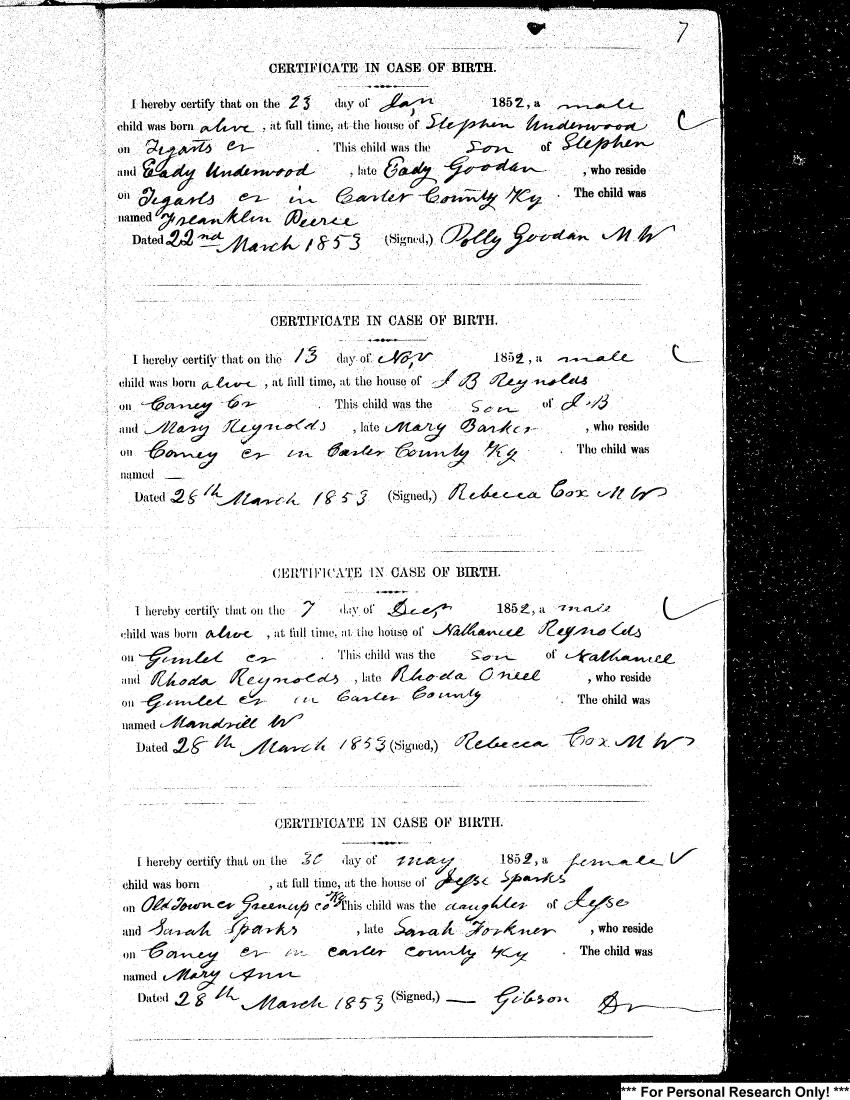 7
CERTIFICATE IN CASE OF BIRTH.
I hereby certify that on the 23 day of Jan, 1852, a male
child was born alive , at full time, at the house of Stephen Underwood
on Tegarts Cr . This child was the Son of Stephen
and Eady Underwood , late Eady Goodan , who reside
on Tegarts cr in Carter County Ky . The child was
named Freanklin Peerce
Dated 22nd March 1853 (Signed,) Polly Goodan M W
CERTIFICATE IN CASE OF BIRTH.
I hereby certify that on the 13 day of Nov, 1852, a male
child was born alive , at full time, at the house of J B Reynolds
on Caney Cr . This child was the Son of J.B
and Mary Reynolds , late Mary Barker , who reside
on Caney cr in Carter County Ky . The child was
named —
Dated 28th March 1853 (Signed,) Rebecca Cox M W
CERTIFICATE IN CASE OF BIRTH.
I hereby certify that on the 7 day of Dec, 1852, a male
child was born alive , at full time, at the house of Nathaniel Reynolds
on Gimlet cr . This child was the Son of Nathaniel
and Rhoda Reynolds , late Rhoda Oneel , who reside
on Gimlet cr in Carter County . The child was
named Mandrill W
Dated 28th March 1853 (Signed,) Rebecca Cox M W
CERTIFICATE IN CASE OF BIRTH.
I hereby certify that on the 30 day of may 1852, a female
child was born , at full time, at the house of Jesse Sparks
on Old Town cr Greenup co Ky This child was the daughter of Jesse
and Sarah Sparks , late Sarah Forkner , who reside
on Caney cr in carter county Ky . The child was
named Mary Ann
Dated 28th March 1853 (Signed,) — Gibson Dr
*** For Personal Research Only! ***